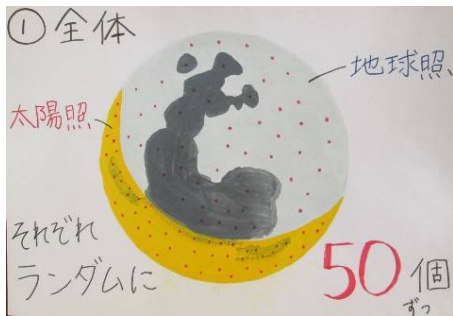 ①全体
地球照
太陽照
それぞれ
ランダムに
50個
ずつ